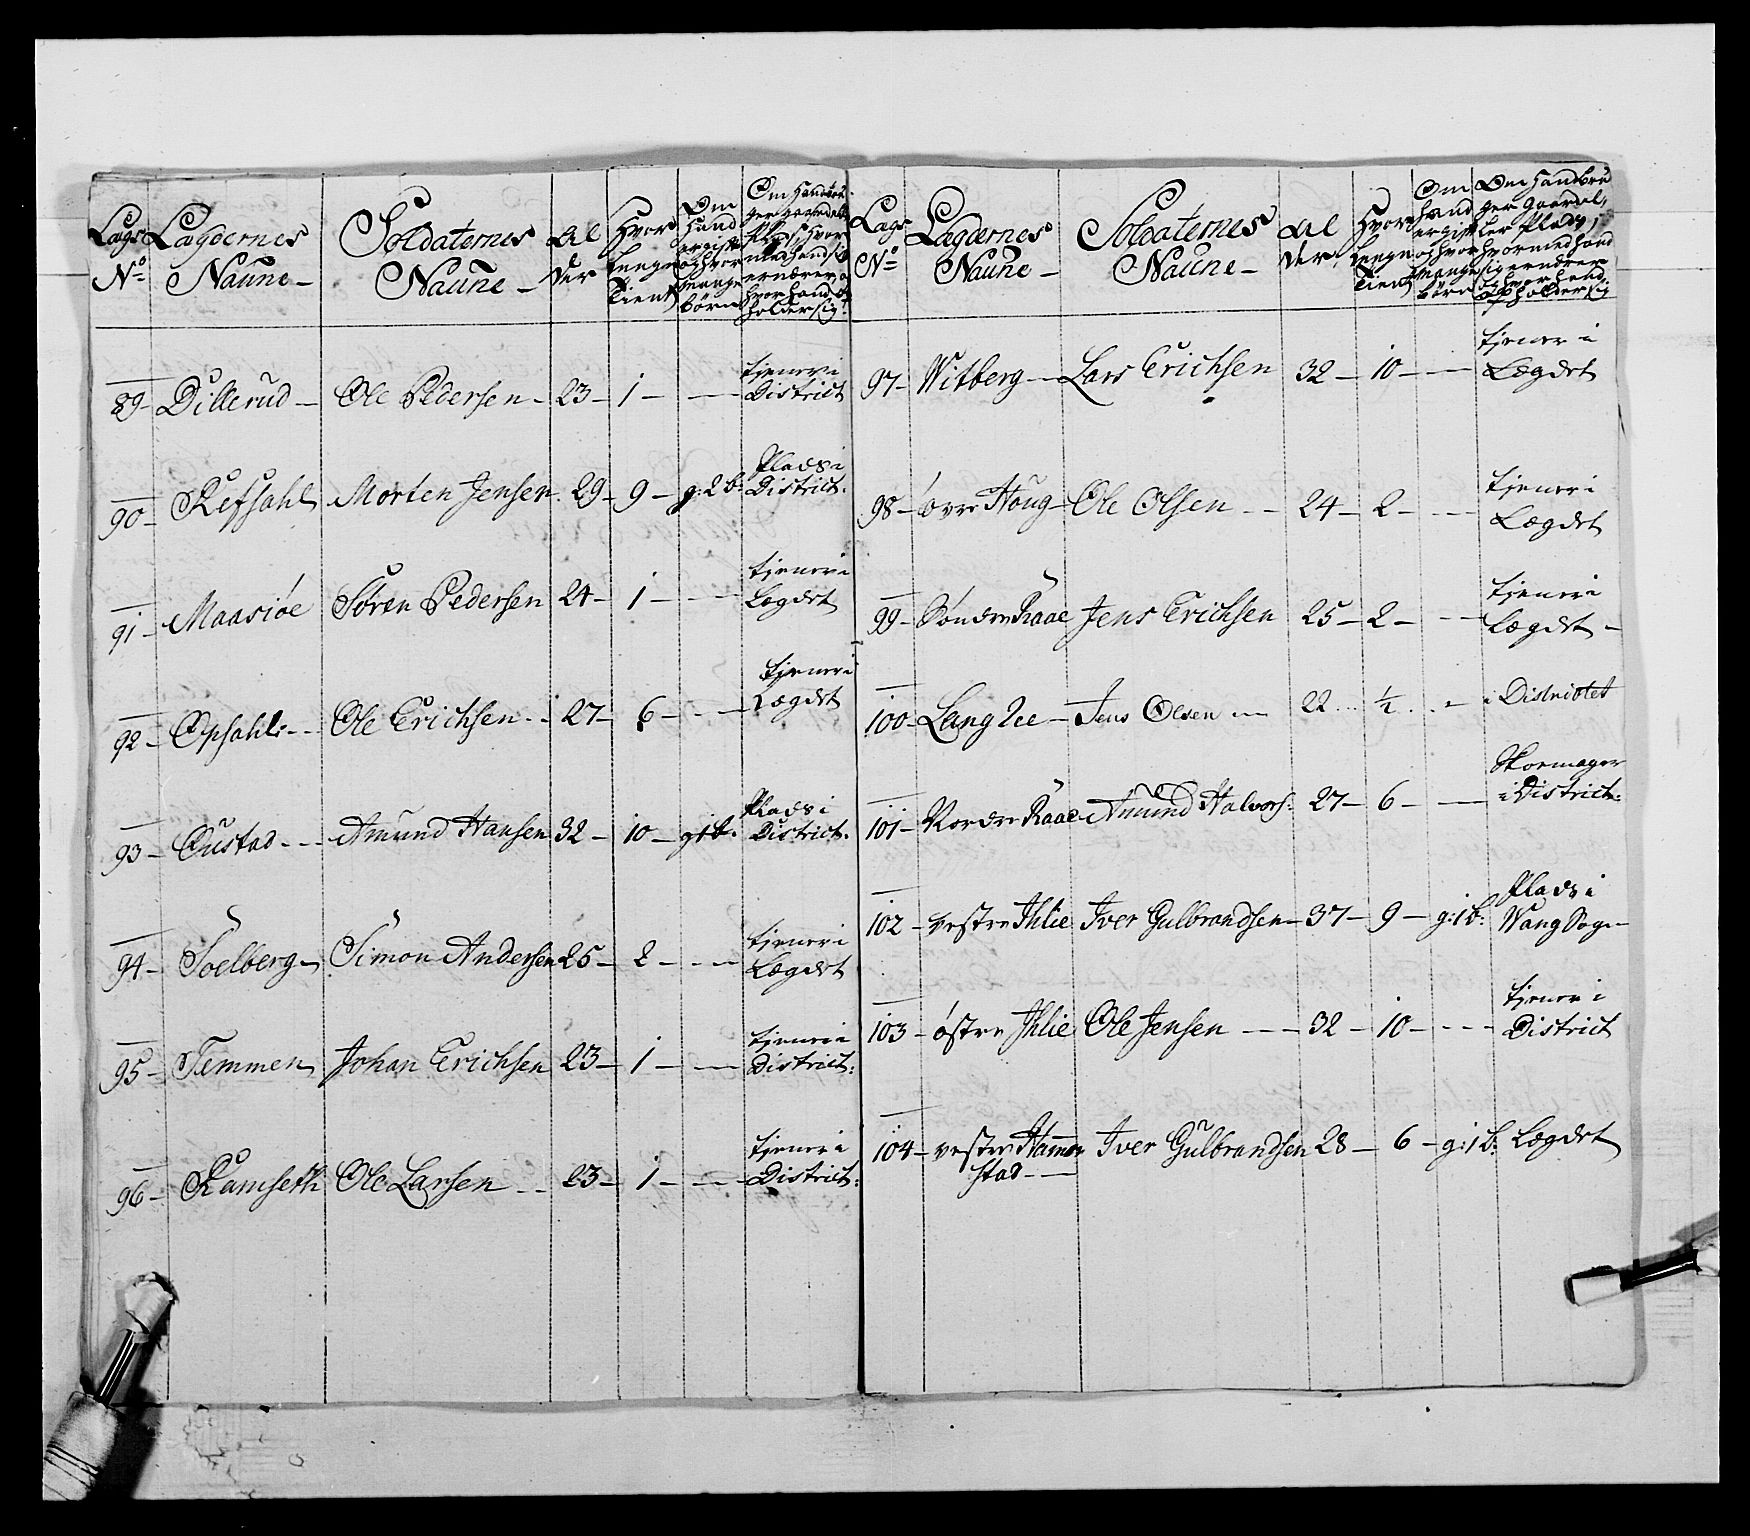 Lags No
Lægdernes Naune
Soldaternes Naune
Al der
Hvor lenge Tient
Om Hand er gift og hvor mange börn
89 Dillerud Ole Pedersen 23 1 tjener i District
90 Refsahl Morten Jensen 29 9 g: 2 b: Plads i District.
91 Maasiöe Sören Pedersen 24 1 tjener i Lægdet
92 Opsahl Ole Erichsen 27 6 tjener i Lægdet
93 Oustad Amund Hansen 32 10 g 1 b. Plads i District.
94 Soelberg Simon Andersen 25 2 tjener i Lægdet
95 Temmen Johan Erichsen 23 1 tjener i District:
96 Ramseth Ole Larsen 23 1 tjener i District:
Lags No
Lægdernes Naune
Soldaternes Naune
Al der
Hvor lenge Tient
Om hand er gift og hvor mange börn
Om hand bru
ger gaard el,
ler Plads,
hvormed hand
sig ernærer
og hvor hand
opholder sig
97 Witberg Lars Erichsen 32 10 tjener i Lægdet
98 övre Houg Ole Olsen 24 2 tjener i Lægdet
99 Söndre Raae Jens Erichsen 25 2 tjener i Lægdet
100 Lang Jens Olsen 22 1/2 i Districtet
101 Nordre Raae Amund Halvors: 27 6 Skoemager i District:
102 vestre Ihlie Iver Gulbrandsen 37 9 g: 1 b: Plads i Wang Sogn
103 östre Ihlie Ole Jensen 32 10 tjener i District
104 vestre Hammer Iver Gulbrandsen 28 6 g: 1 b: Lægdet
stad